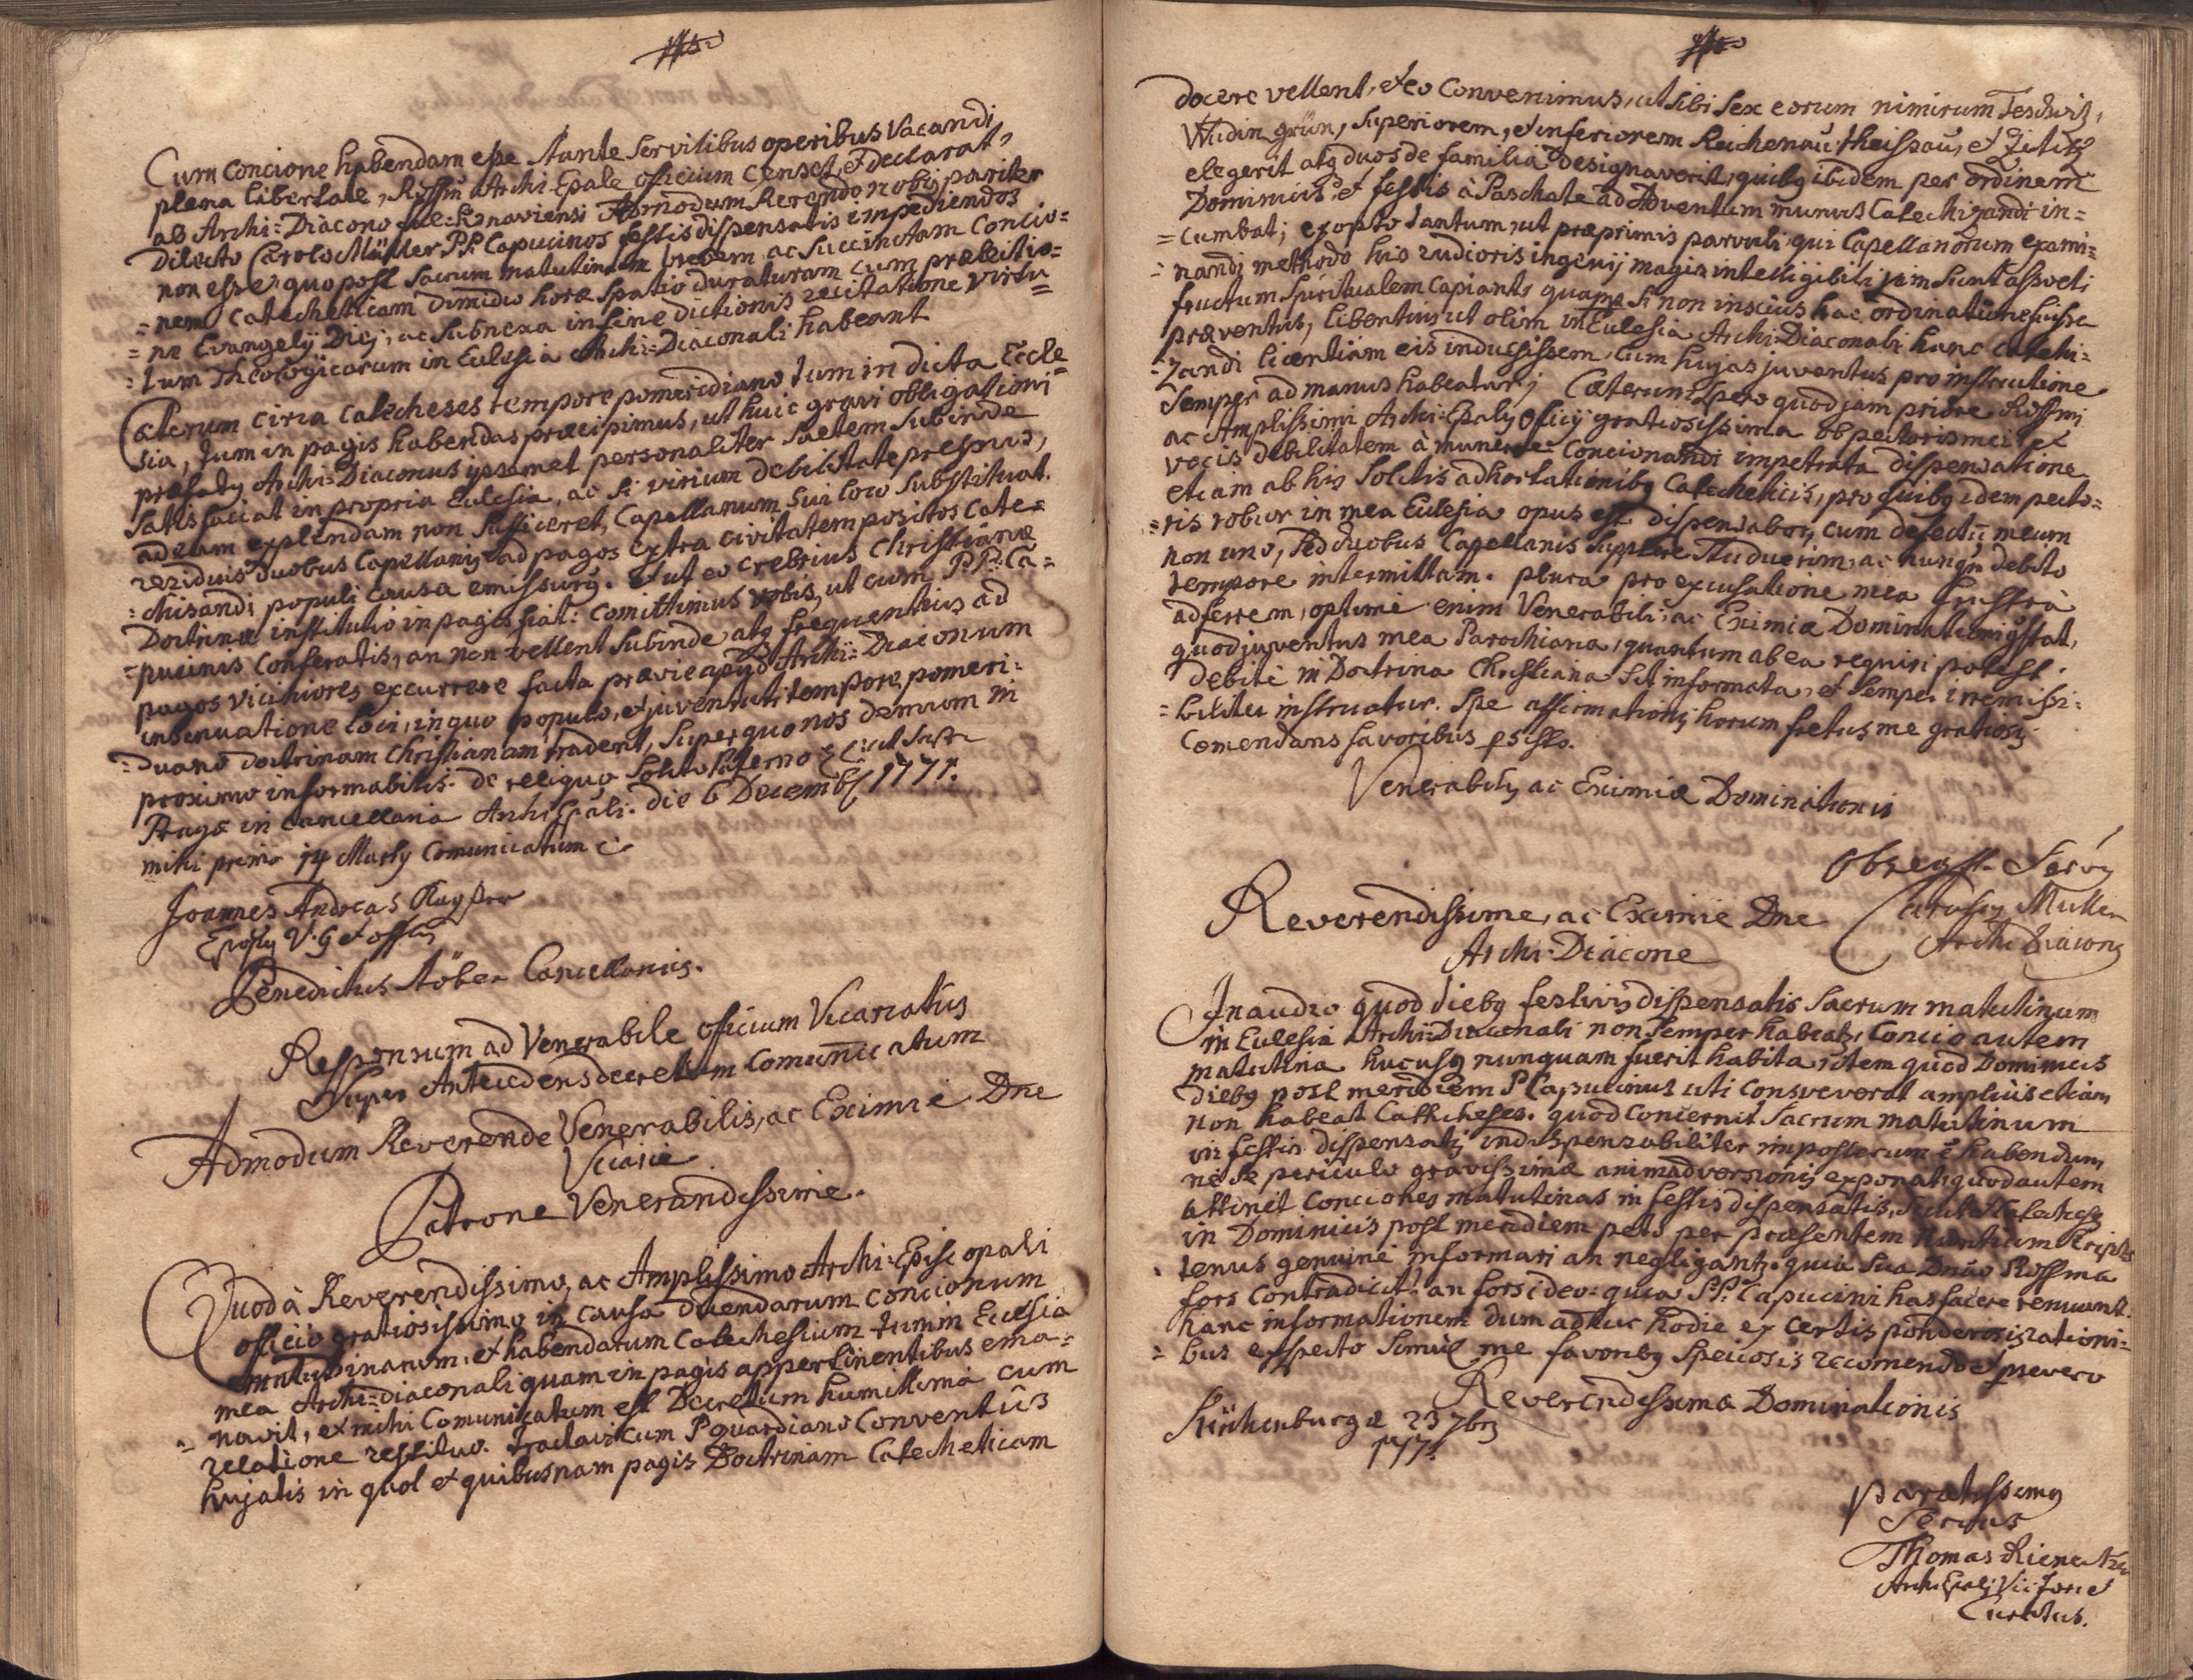 Cum Concione habendam esse stante servilibus operibus Vacandi
plena libertate, Rssm̃ Archi Epale officium censet, et declarat,
ab Archi=Diacono Falkenaviensi Admodum Rerendo nobis pariter
Dilecto Carolo Müller PP. Capucinos festis dispensatis impediendos
non esse, quo post sacrum matutinum brevem ac succinctam Concio=
=nem Catecheticam dimidio horæ spatio duraturam cum prælectio=
=ne Evangelij Diej, ac subnexa in fine dictionis recitatione virtu=
=tum Theologicarum in Eclesia Archi=Diaconali habeant
Cæterum circa Catecheses tempore pomeridiano tum in dicta Eccle=
sia, tum in pagis habendas præcipimus, ut huic gravi obligationi
præfatg Archi=Diaconus ipsemet personaliter saltem subinde
satisfaciat in propria Eclesia, ac si virium debilitate pressus,
ad eam explendam non sufficeret, Capellanum sui loco substituat.
reziduis duobus Capellanis ad pagos extra civitatem positos Cate=
=chisandi populi causa emissurg. et ut eo crebrius Christianæ
Doctrinæ institutio in pagis fiat: Comittimus vobis, ut cum P.P. Ca=
=pucinis Conferatis, an non vellent subinde atq frequentius ad
pagos viciniores excurrere facta prævie apud Archi=Diaconum
insinuatione loci, in quo populo, et juventuti tempore pomeri=
=diano doctrinam Christianam tradent, super quo nos demum in
proximo informabitis. de reliquo solito Paterno
Pragæ in Cancellaria Archi Epali. die 6 Decemb 1771.
mihi primo 14 Martij Comunicatum
Joannes Andreas Kayser
Epofg V: G et offlis
Benedictus Stöber Cancellarius.
Responsum ad Venerabile officium Vicariatûs
super Antecedens decretum Comunicatum
Admodum Reverende Venerabilis, ac Eximie Dne
Vicarie
Patrone Venerandissime.
Quod à Reverendissimo, ac Amplissimo Archi=Episcopali
officio gratiosissimo in causa dicendarum concionum
matutinarum, et habendarum Catechesium tum in Eclesia
mea Archi=diaconali quam in pagis appertinentibus ema=
=navit, et mihi Comunicatum est Decretum humillimà cum
relatione restituo. Tractavi cum P guardiano Conventûs
hujatis in quot et quibusnam pagis Doctrinam Catecheticam
docere vellent, et eo Convenimus, ut sibi sex eorum nimirum Teschwitz,
Wudingrün, superiorem, et inferiorem Reichenau, theissau, et Zititz
elegerit atq duos de familia designaverit, quibg ibidem per ordinem
Dominicis, et festis à Paschate ad Adventum munus Catechizandi in=
=cumbat; exopto tantum, ut præprimis parvuli, qui Capellanorum exami=
=nandi methodo his rudioris ingenij magis intelligibili jam sunt assveti
fructum spiritualem capiant, quapp si non inscius hac ordinatione fuissem
præventus, libentius ut olim in Eclesia Archi=Diaconali hanc Catechi=
=zandi licentiam eis indulsissem, cum hujas juventus pro instructione
semper ad manus habeatur; Cæterum spero quod jam priore Rssmi
ac Amplissimi Archi=Epalis officij gratiosissima ob pectoris mei, et
vocis debilitatem à munere Concionandi impetrata dispensatione
etiam ab his solitis adhortationibg Catecheticis, pro quibg idem pecto=
=ris robur in mea Eclesia opus est dispensabor, cum defectũ meum
non uno, sed duobus Capellanis supplere studuerim, ac nunqũ debito
tempore intermittam. plura pro excusatione mea frustrà
adferrem, optimè enim Venerabili, ac Eximiæ Dominationi Constat,
quod juventus mea Parochiana, quantum ab ea requiri potest.
debitè in Doctrina Christiana sit informata, et semper irremissi=
=biliter instruatur. Spe affirmationis horum fretus me gratiosis
Comendans favoribus psisto.
Venerabilis ac Eximiæ Dominationis
Obseqss. Servg
Carolus Müller
Archi Diacong
Reverendissime, ac Eximie Dne
Archi=Diacone
Inaudio quod diebg festivis dispensatis sacrum matutinum
in Eclesia Archi=Diaconali non semper habeat, Concio autem
matutina hucusq nunquam fuerit habita, item quod Dominicis
diebg post meridiem P Capucinus uti Consveverat ampliûs etiam
non habeat Cathecheses. quod Concernit sacrum matutinum
in festis dispensatis indispensabiliter imposterum ẽ habendum
ne se periculo gravissimæ animadversionis exponat, quod autem
attinet Conciones matutinas in festis dispensatis, sicut Catecheses
in Dominicis post meridiem peto per præsentem nuntium scripto
tenus genuinè informari an negligant, quia sua Dnão Rssma
fors Contradicit? an fors ideo: quia PP. Capucini has facere renuunt.
hanc informationem dum adhuc hodie ex certis ponderosis rationi=
=bus expecto simul me favoribg speciosis recomendo et psevero
Reverendissimæ Dominationis
23 7bris
1771.
Paratissimg
Servus
Thomas
Archi Epalis Vic foran et
Curatus.